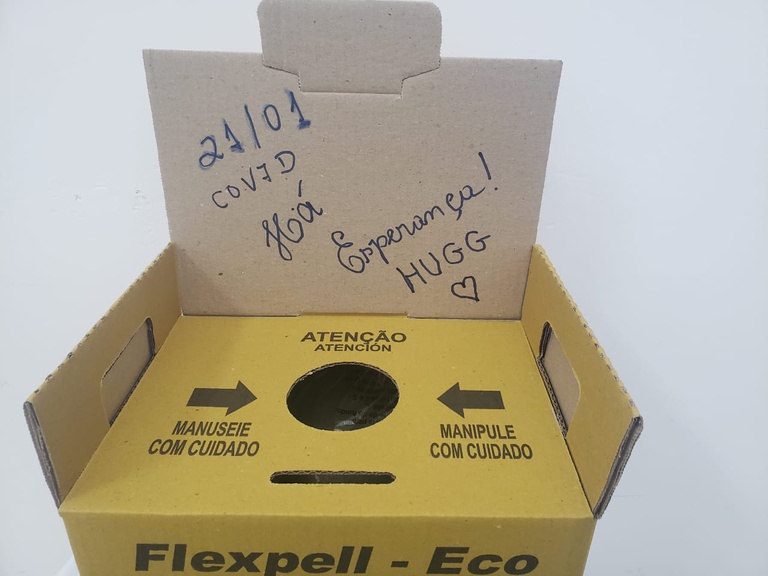 21/01
COVID
Há
Esperança!
HUGG
ATENÇÃO
ATENCIÓN
MANUSEIE
COM CUIDADO
MANIPULE
COM CUIDADO
Flexpell - Eco